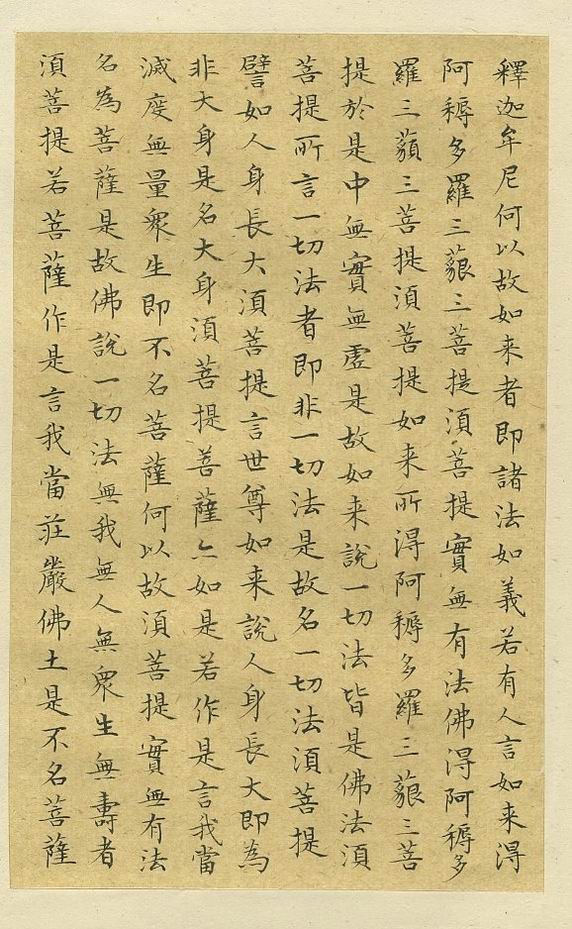 釋迦牟尼何以故如来者即諸法如義若有人言如来得
阿耨多羅三藐三菩提湏菩提實無有法佛得阿耨多
羅三藐三菩提湏菩提如来所得阿耨多羅三藐三菩
提於是中無實無虛是故如来說一切法皆是佛法湏
菩提所言一切法者即非一切法是故名一切法湏菩提
譬如人身長大湏菩提言世尊如来說人身長大即為
非大身是名大身湏菩提菩薩亦如是若作是言我當
滅度無量眾生即不名菩薩何以故湏菩提實無有法
名為菩薩是故佛說一切法無我無人無眾生無壽者
湏菩提若菩薩作是言我當莊嚴佛土是不名菩薩